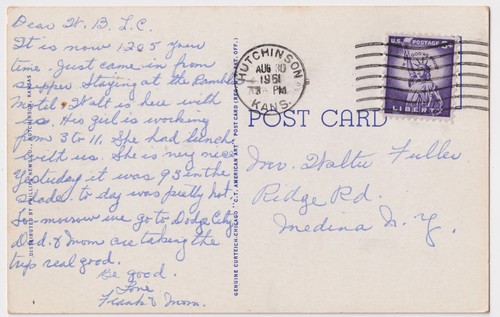 Dear W. B. L. C.
It is now 1205 your
time. Just came in from
supper. Staying at the Rambler
Motel. Walt is here with
us. His girl is working
from 3 to 11. She had lunch
with us. She is very nice.
Yesterday it was 93 in the
shade. to day was pretty hot.
Tomorrow we go to Dodge City.
Dad & Mom are taking the
trip real good.
Be good.
Love
Frank & Mom.
DISTRIBUTED BY PHILLIPS NEWS CO., HUTCHINSON, KANSAS
GENUINE CURTEICH-CHICAGO "C.T. AMERICAN ART" POST CARD (REG. U.S. PAT. OFF.)
HUTCHINSON
AUG 30
3 - PM
1961
KANS.
U.S. POSTAGE 3¢
LIBERTY
POST CARD
Mr. Walter Fuller
Ridge Rd.
Medina N.Y.